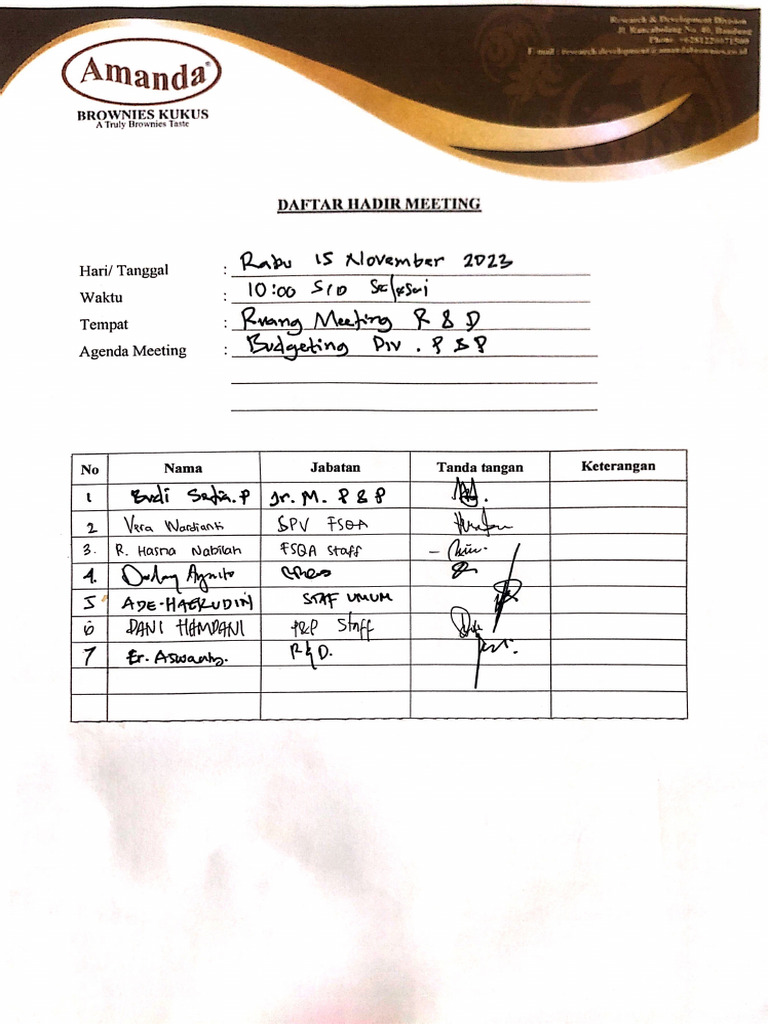 Research & Development Division
Jl. Rancabolang No. 40, Bandung
Phone
E-mail : research.development@amandabrownies.co.id
Amanda
BROWNIES KUKUS
A Truly Brownies Taste
DAFTAR HADIR MEETING
Hari/ Tanggal : Rabu 15 November 2023
Waktu : 10:00 S/D Selesai
Tempat : Ruang Meeting R & D
Agenda Meeting : Budgeting Div. P & P
No Nama Jabatan Tanda tangan Keterangan
1 Budi Jr. M. P & P
2 Vera Wardianti SPV FSQA
3. R. Hasna Nabilah FSQA Staff
4.
5 ADE-HAERUDIN STAF UMUM
6 DANI HAMDANI Staff
7 Er. Aswanto. R & D.